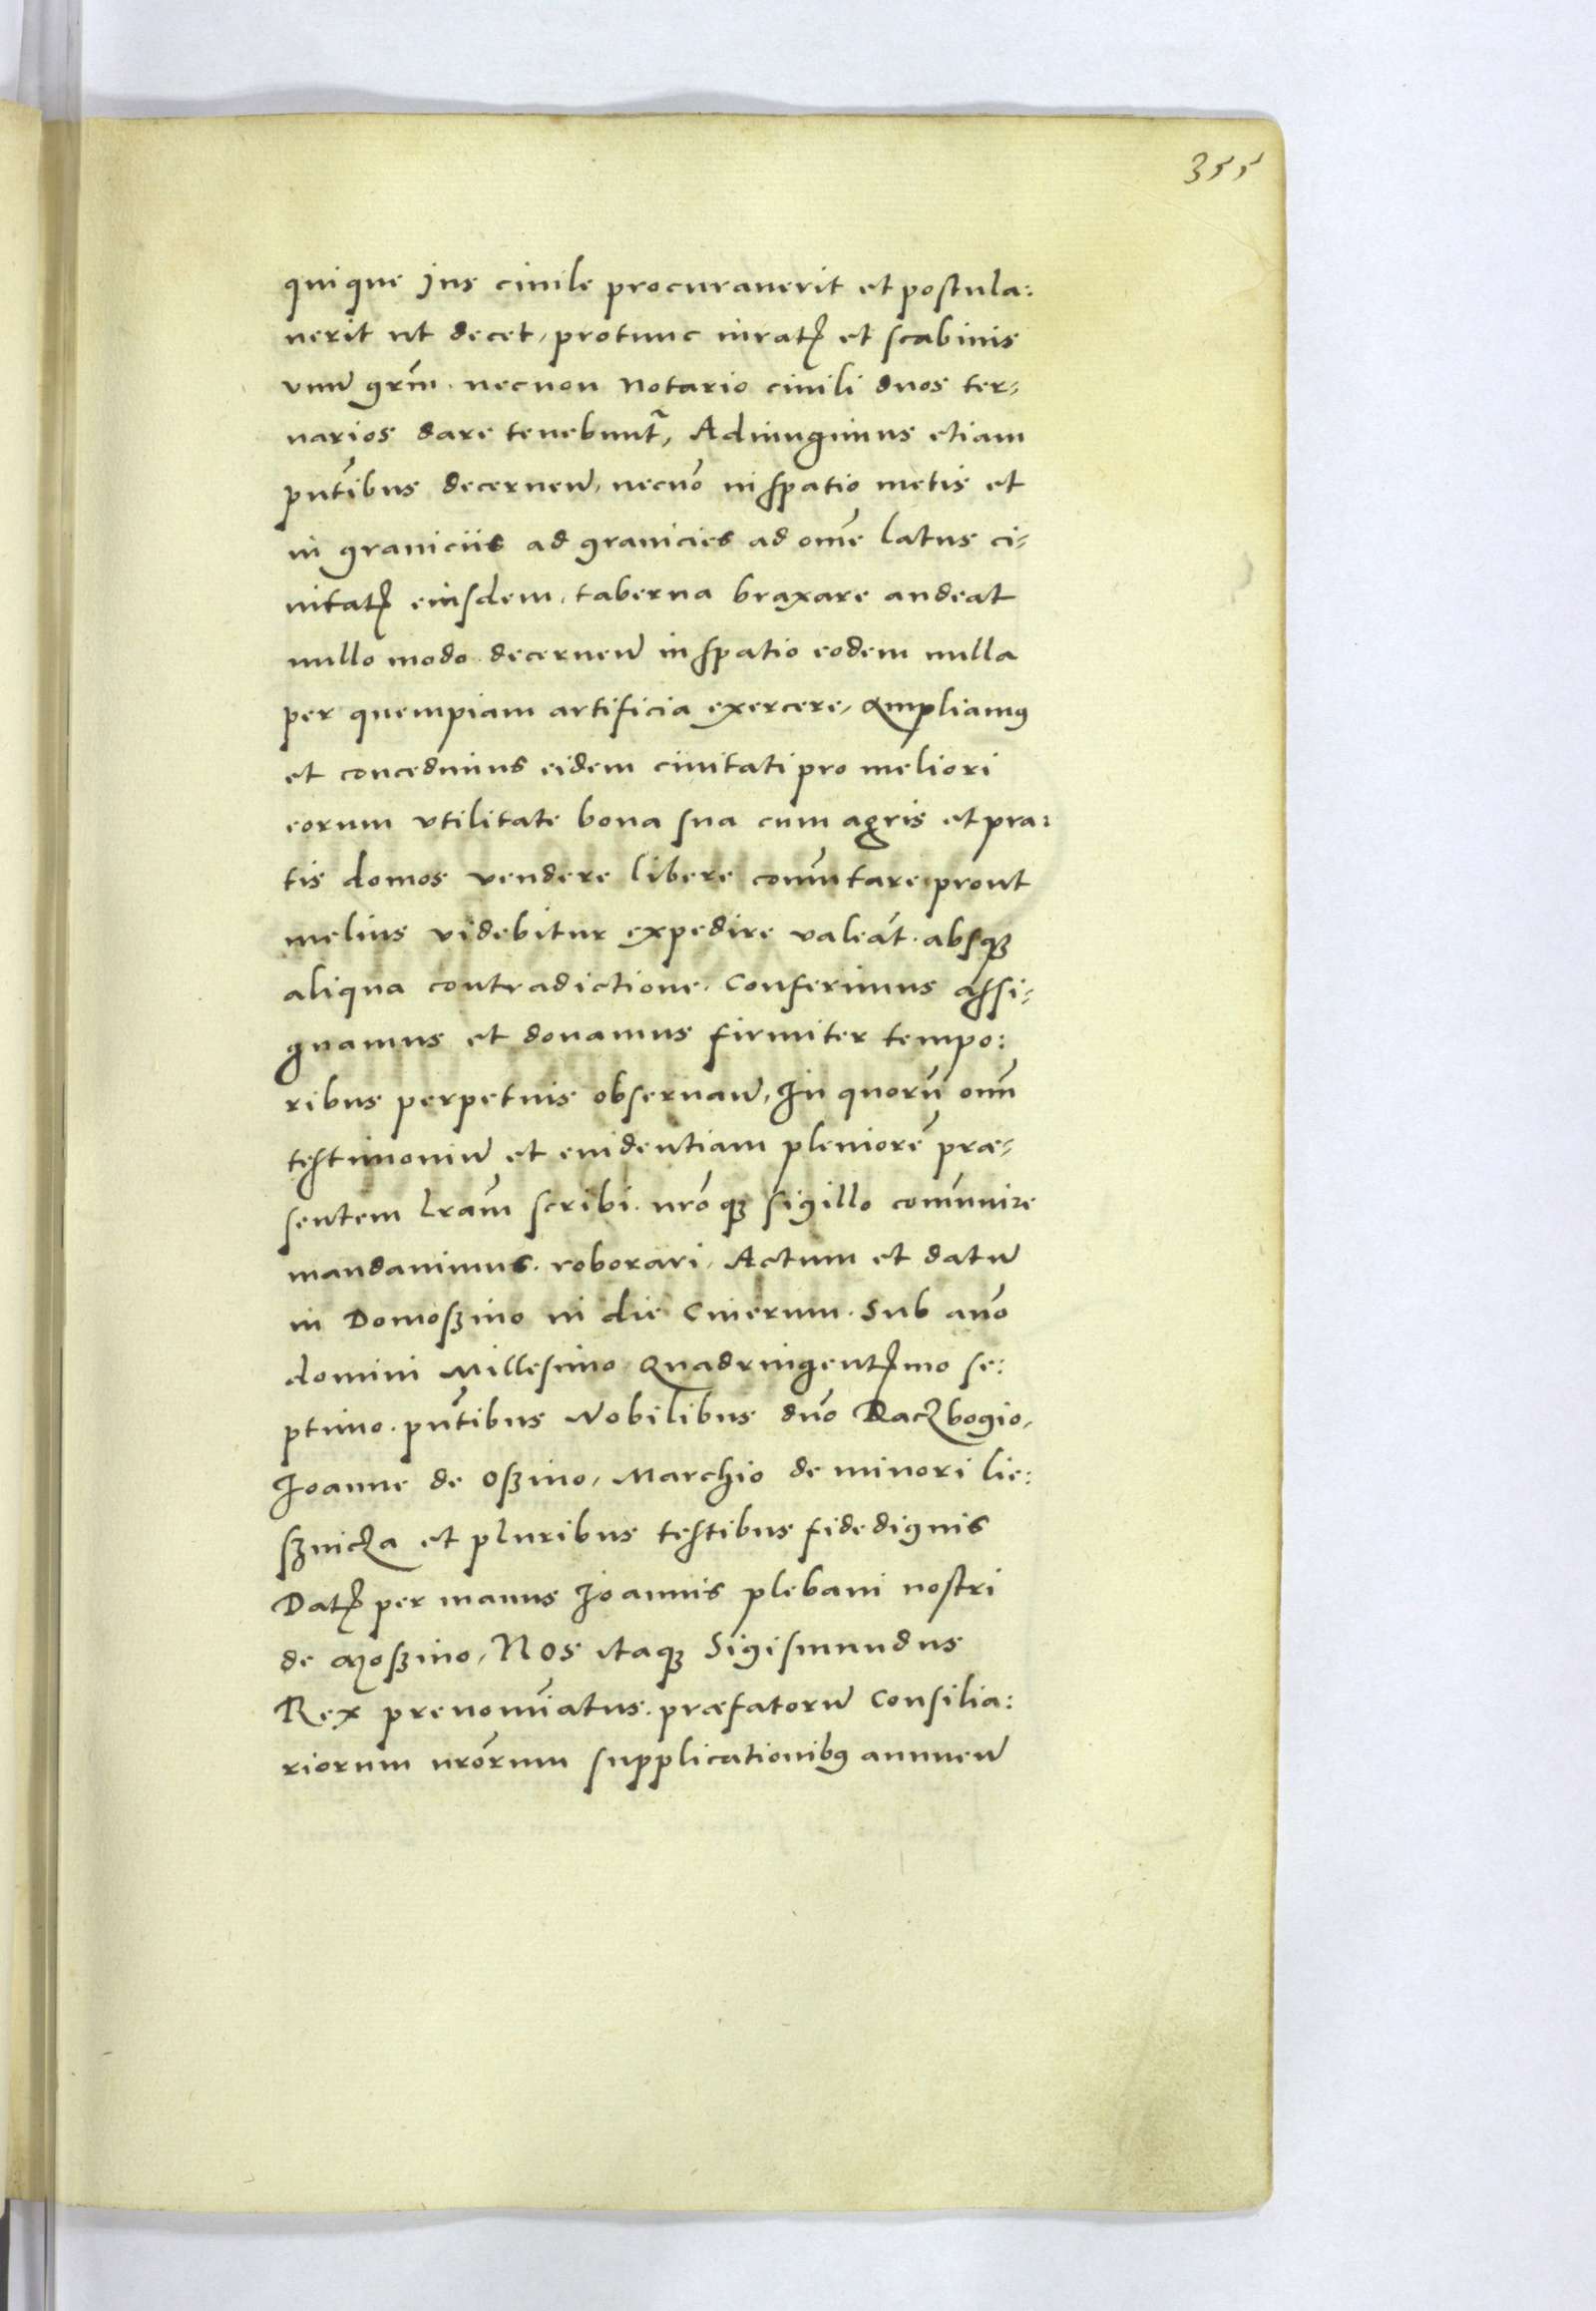 355
quique jus ciuile procurauerit et postula:
uerit ut decet, protunc iuratꝭ et scabinis
vnuꝫ grm̃. necnon Notario ciuili duos ter-
narios dare tenebunt᷑, Adiungimus etiam
pñtibus decerneñ, necnõ in spatio metis et
in graniciis ad granicies ad om̃e latus ci-
uitatꝭ eiusdem, taberna braxare audeat
nullo modo decerneñ in spatio eodem nulla
per quempiam artificia exercere, Ampliamꝰ
et concedimus eidem ciuitati pro meliori
eorum vtilitate bona sua cum agris et pra:
tis domos vendere libere com̃utare prout
melius videbitur expedire valeãt. absqꝫ
aliqua contradictione. Conferimus assi-
gnamus et donamus firmiter tempo:
ribus perpetuis obseruañ, In quorũ om̃
testimoniũ et euidentiam pleniorẽ præ-
sentem l̃ram scribi. nr̃oqꝫ sigillo com̃unire
mandauimus. roborari, Actum et datũ
in Domoszino in die Cinerum. Sub an̄o
domini Millesimo Quadringentꝭmo se:
ptimo. pñtibus Nobilibus dño Raczbogio,
Joanne de Oszino, Marchio de minori lie:
sznicza et pluribus testibus fidedignis
Datꝭ per manus Joannis plebani nostri
de moszino, Nos itaqꝫ Sigismundus
Rex prenom̃iatus. præfatorũ Consilia:
riorum nr̃orum supplicationibꝰ annueñ